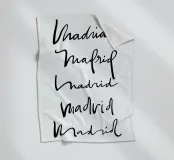 Madrid
Madrid
Madrid
Madrid
Madrid